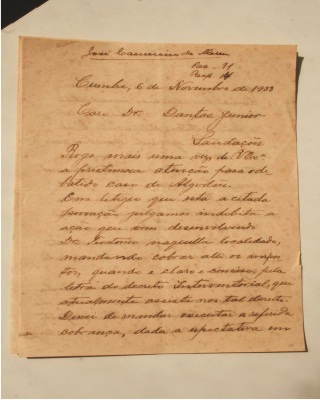 José
Rec - 11
Resp
Cunha, 6 de Novembro de 1933
Caro Dr. Dantas Junior
Saudações
Rogo mais uma vez de V. Excia
a attenção para o de-
batido caso de Algodão.
Em litigio que está a citada
julgamos indebita a
ação que vem desenvolvendo
Dr. naquella localidade,
mandando cobrar ate os impos-
tos, quando é claro e pela
letra do decreto Interventorial, que
assiste nos tal direito.
Deixei de mandar executar a referida
cobrança, dada a espectativa em